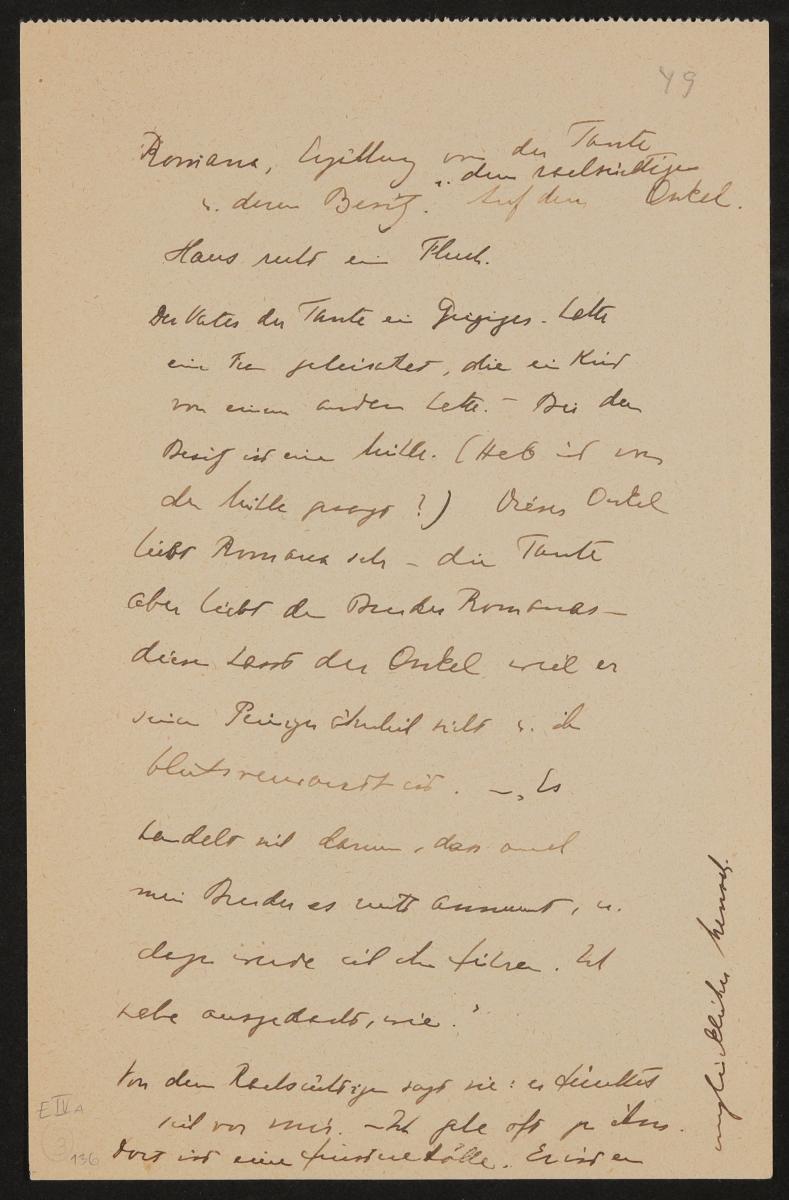 49
Romana, Erzählung von der Tante
u. dem rachsüchtigen
u. deren Besitz. Auf dem Onkel.
Haus ruht ein Fluch.
Der Vater der Tante ein Geiziger. Hatte
eine Frau geheiratet, die ein Kind
von einem andern hatte. – Bei dem
Besitz ist eine Mühle. (Hat ist von
der Mühle gesagt?) Dieser Onkel
liebt Romana sehr – die Tante
aber liebt den Bruder Romanas –
diesen hasst der Onkel weil er
seinem Peiniger ähnlich sieht u. ihm
blutsverwandt ist. – „Es
handelt sich darum, dass auch
mein Bruder es nicht annimmt, u.
dazu werde ich ihn führen. Ich
habe ausgedacht, wie."
Von dem Rachsüchtigen sagt sie: er fürchtet
sich vor mir. – Ich gehe oft zu ihm.
Dort ist eine Hölle. Er ist ein
unglücklicher Mensch.
E IV A
136